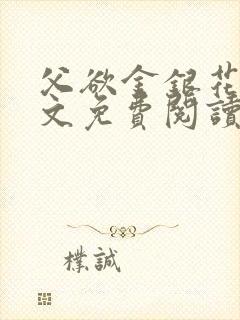 父欲金銀花
文免費閱讀
樸誠